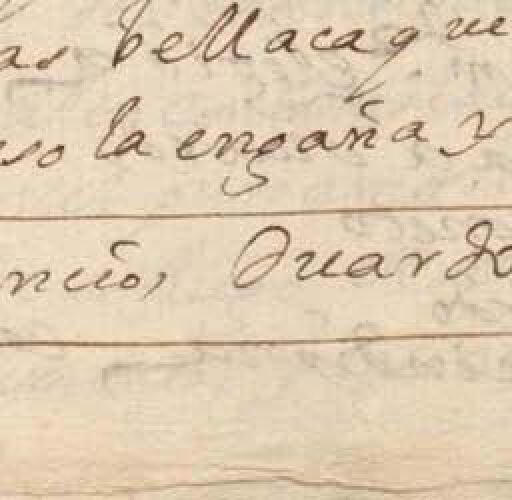 as bellacaque
so la engaña y
ncio, Duardo